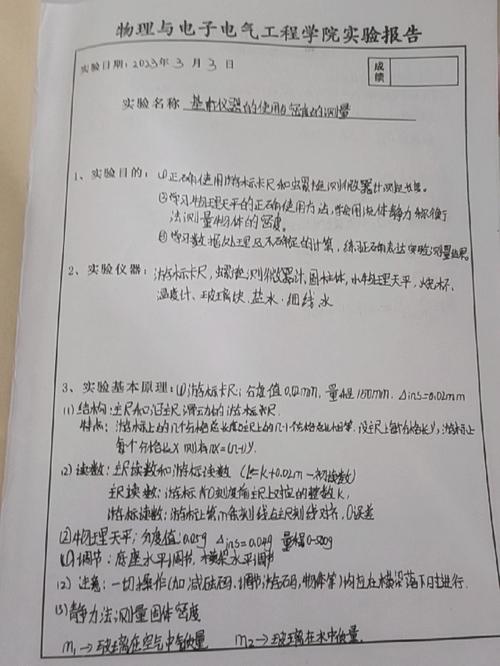 物理与电子电气工程学院实验报告
实验日期：2023年 3 月 3 日
成绩
实验名称 基本仪器的使用与密度的测量
1、实验目的：(1)正确使用游标卡尺和螺旋测微器计测量长度。
(2)学习物理天平的正确使用方法，学会用流体静力称衡
法测量物体的密度。
(3)学习数据处理及不确定的计算，练正确表达实验测量结果。
2、实验仪器：游标卡尺，螺旋测微器计，圆柱体，水，物理天平，烧杯，
温度计、玻璃块、盐水、细线、水
3、实验基本原理：(1)游标卡尺：分度值0.02mm，量程150mm．△ins=0.02mm
(1)结构：主尺和沿主尺滑动的游标卡尺．
特点：游标上的n个分格总长度与主尺上的n-1个分格总长相等．设主尺上每分格长y，游标上
每个分格长x 则有nx=(n-1)y．
(2)读数：主尺读数和游标读数 (L=k+0.02m－初读数)
主尺读数：游标尺0刻度自主尺上对应的整数k，
游标读数：游标上第m条刻线与主尺刻线对齐，0误差
(2)物理天平：分度值：0.05g △ins=0.04g 量程0-500g
(1)调节：底座水平调节．横梁水平调节
(2)注意：一切操作(加减砝码、调节游码、物体等)均应在横梁落下时进行．
(3)静力法测量固体密度
m₁→玻璃在空气中质量 m₂→玻璃在水中质量